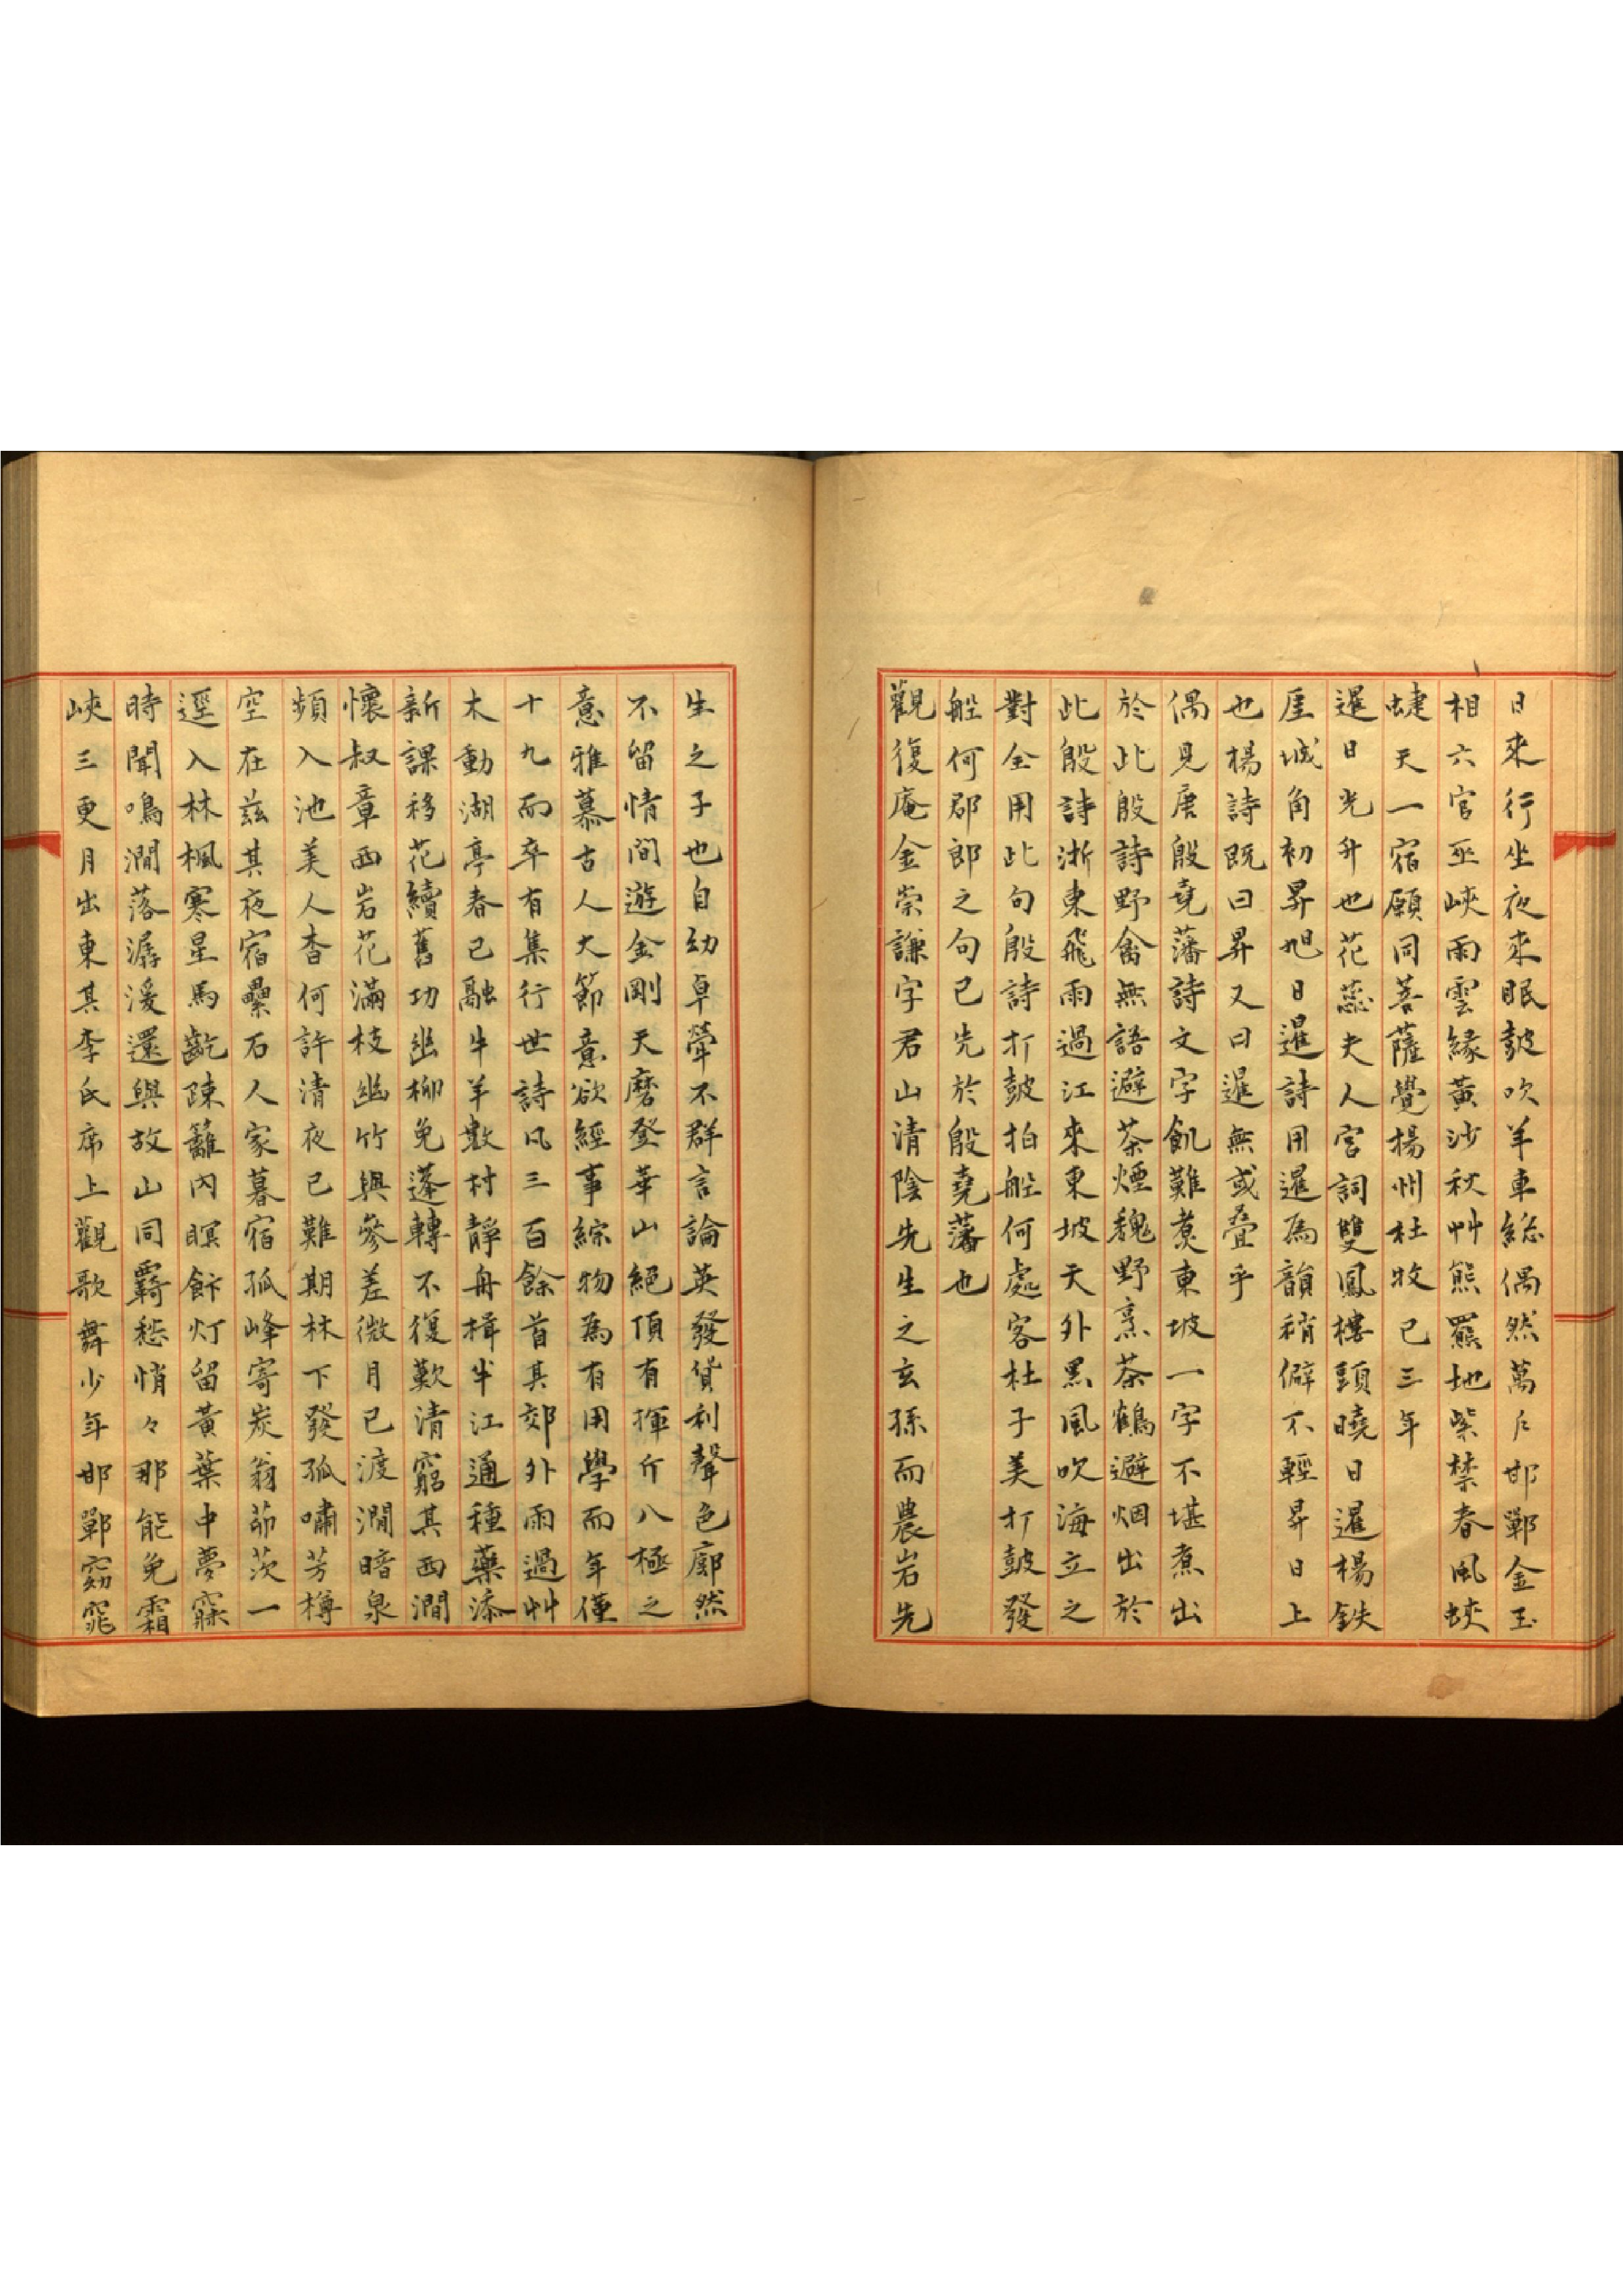 日來行坐夜來眠鼓吹羊車總偶然萬斤邯鄲金玉
相六宮巫峽雨雲緣黃沙秋艸熊羆地紫禁春風蛺
蜨天一宿願同菩薩覺楊州杜牧已三年
暹日光升也花蕊夫人宮詞雙鳳樓頭曉日暹楊鉄
厓城角初昇旭日暹詩用暹爲韻稍僻不輕昇日上
也楊詩既曰昇又曰暹無或疊乎
偶見唐殷堯藩詩文字飢難煑東坡一字不堪煮出
於此殷詩野禽無語避茶煙魏野烹茶鶴避烟出於
此殷詩浙東飛雨過江來東坡天外黑風吹海立之
對全用此句殷詩打鼓拍船何處客杜子美打鼓發
船何郡郎之句已先於殷堯藩也
觀復庵金崇謙字君山清陰先生之玄孫而農岩先
生之子也自幼卓犖不群言論英發貨利聲色廓然
不留情間遊金剛天磨登華山絕頂有揮斤八極之
意雅慕古人大節意欲經事綜物爲有用學而年僅
十九而卒有集行世詩凡三百餘首其郊外雨過艸
木動湖亭春已融牛羊數村靜舟楫半江通種藥添
新課移花續舊功幽柳免蓬轉不復歎清窮其西澗
懷叔章西岩花滿枝幽竹與參差微月已渡澗暗泉
頻入池美人杳何許清夜已難期林下發孤嘯芳樽
空在茲其夜宿壘石人家暮宿孤峰寄炭翁茆茨一
逕入林楓寒星馬齕踈籬內暝餙灯留黃葉中夢寐
時聞鳴澗落潺湲還與故山同羈愁悄々那能免霜
峽三更月出東其李氏席上觀歌舞少年邯鄲窈窕